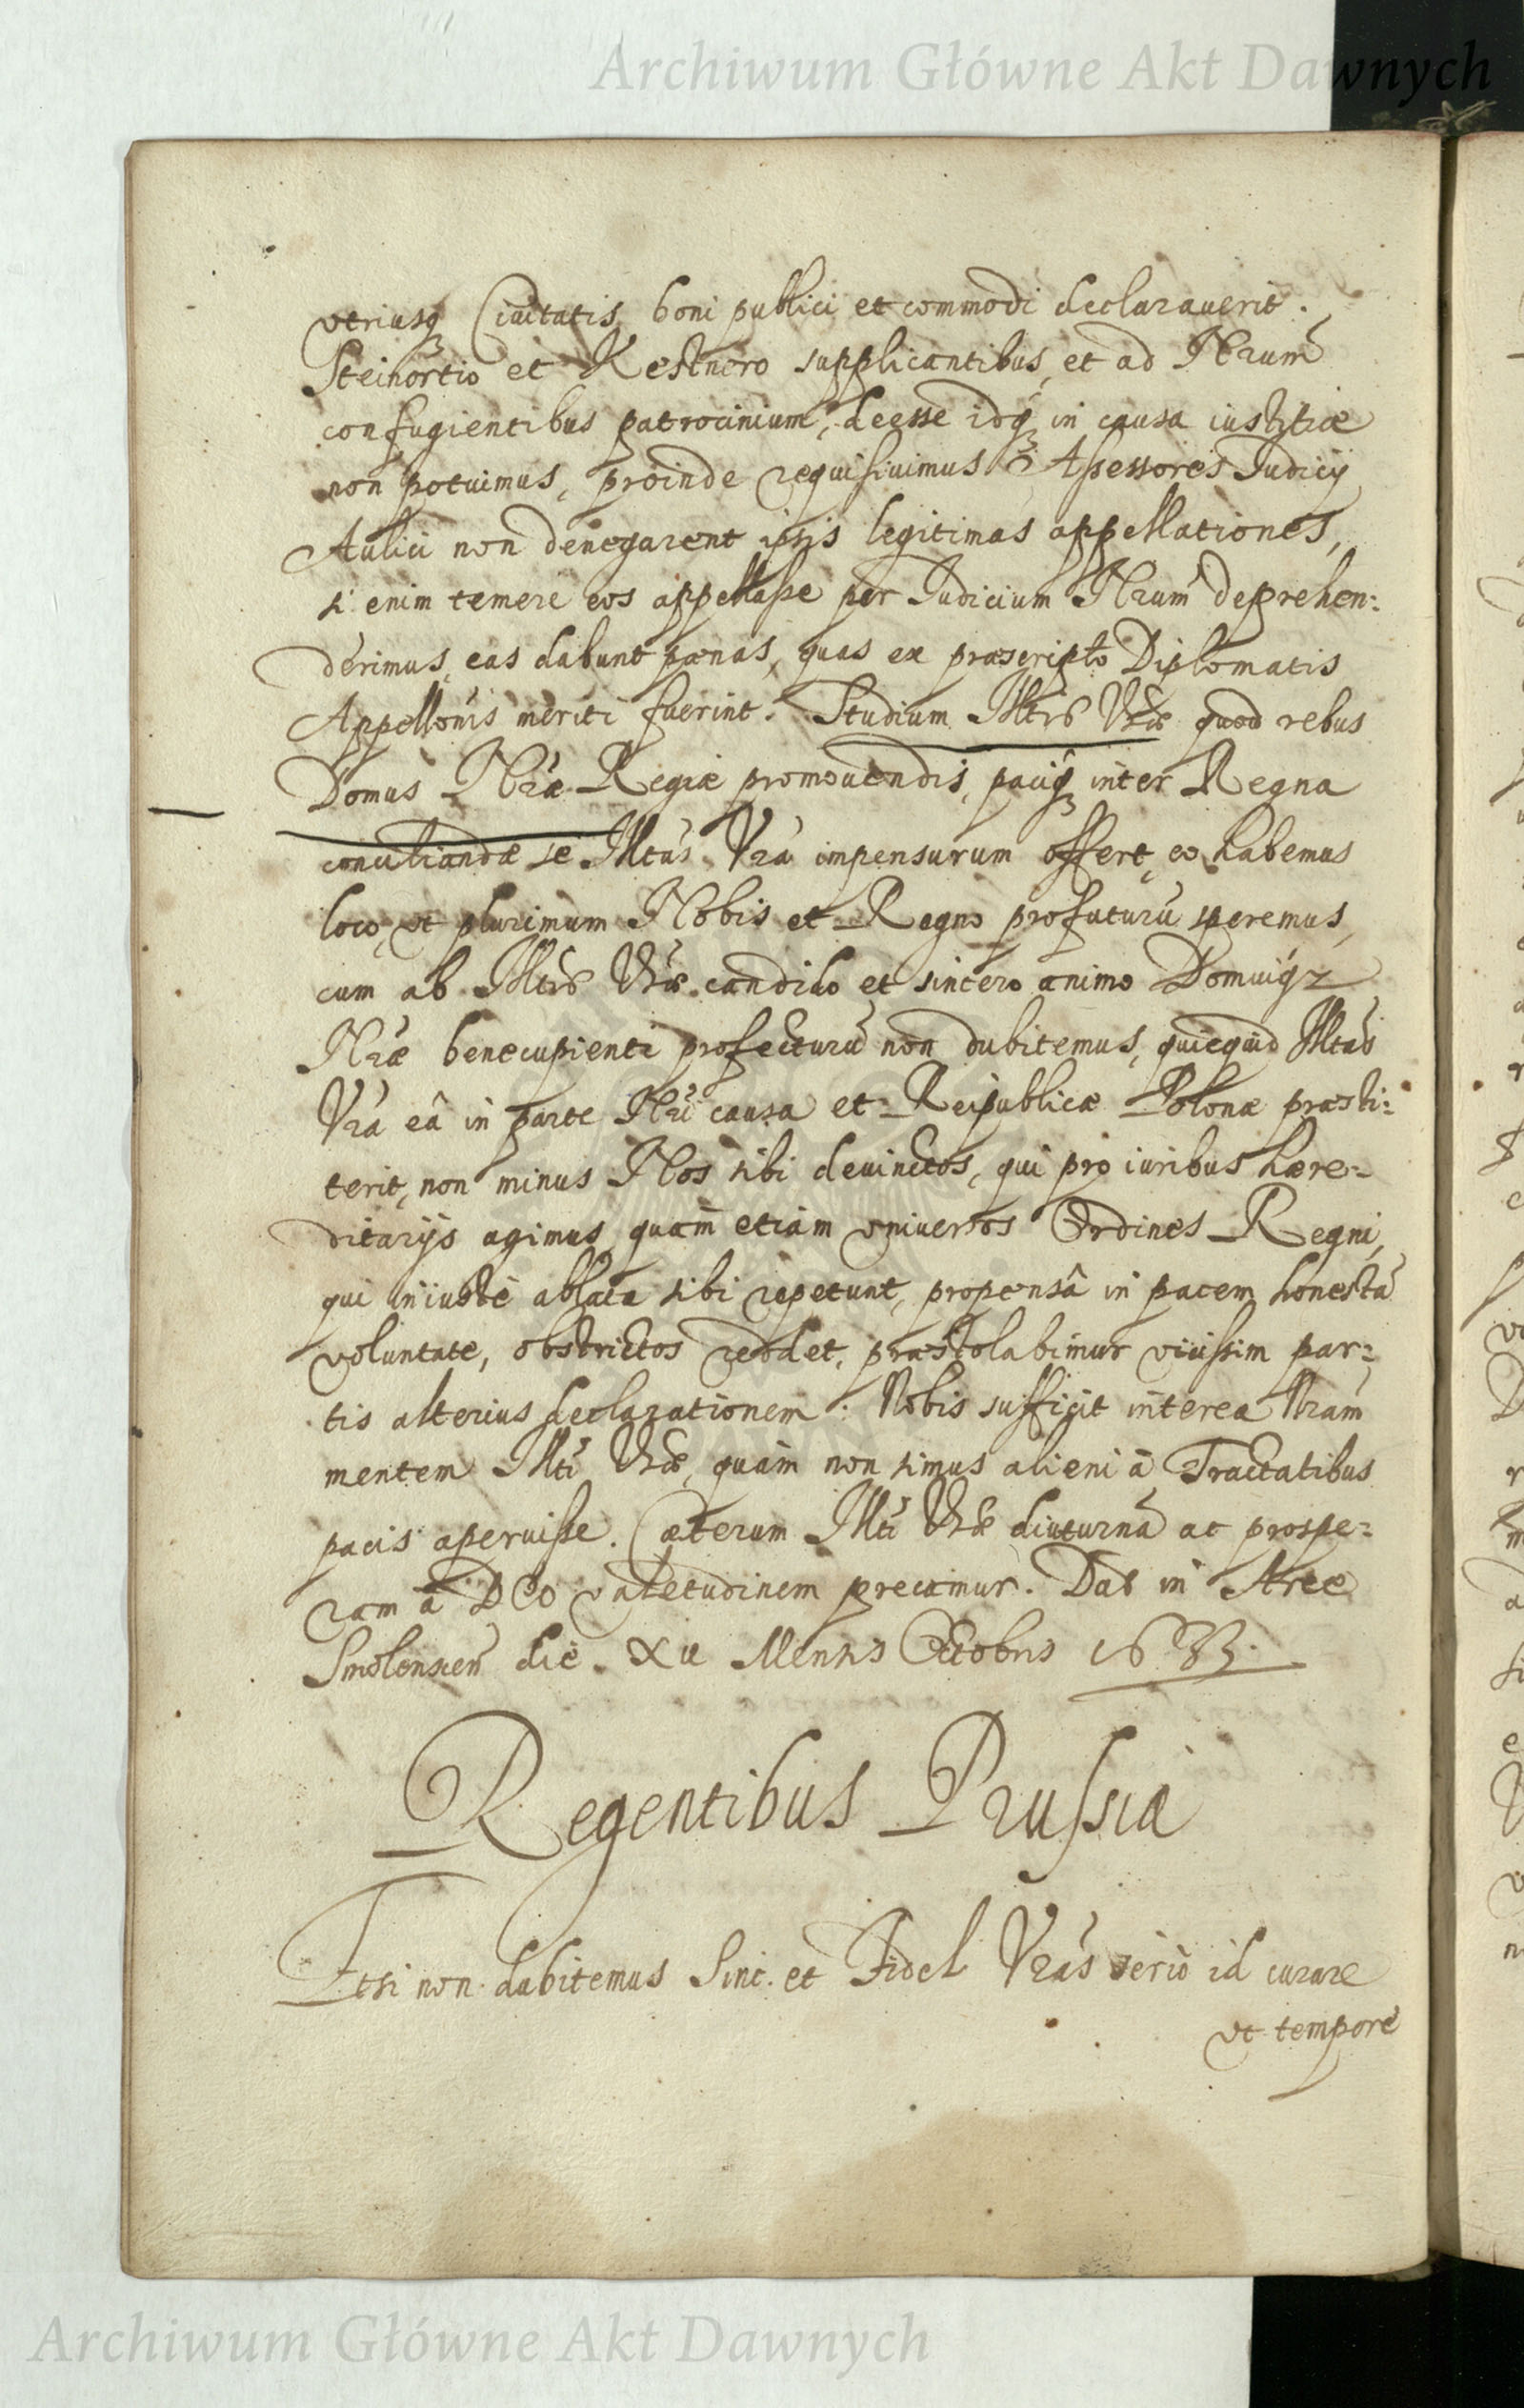 Archiwum Główne Akt Dawnych
vtriusq́ʒ Ciuitatis, boni publici et commodi declarauerit.
Steinortio et Kestnero supplicantibus, et ad Nrum̃
confugientibus patrocinium, deesse idq́ʒ in causa iustitiæ
non potuimus, proinde requisiuimus Assessores Iudicij
Aulici non denegarent ipsis legitimas appellationes,
si enim temere eos appellasse per Iudicium Nrum̃ deprehen:
derimus, eas dabunt pœnas, quas ex præscripto Diplomatis
Appellonis meriti fuerint. Studium Iltis Vræ quod rebus
Domus Nræ Regiæ promouendis, paciq́ʒ inter Regna
conciliandæ se Iltas Vra impensurum offert, eo habemus
loco, vt plurimum Nobis et Regno profuturũ speremus,
cum ab Iltis Vræ candido et sincero animo Domuiq́ʒ
Nræ benecupienti profecturũ non dubitemus, quicquid Iltas
Vra eâ in parte Nri causa et Reipublicæ Polonæ præsti:
terit, non minus Nos sibi deuinctos, qui pro iuribus hære:
ditarijs agimus, quam etiam vniuersos Ordines Regni,
qui iniustè ablata sibi repetunt, propensâ in pacem honestã
voluntate, obstrictos reddet, præstolabimur vicissim par:
tis alterius declarationem. Nobis sufficit interea Nram
mentem Ilti Vræ, quàm non simus alieni à Tractatibus
pacis aperuisse. Cæterum Ilti Vræ diuturnã ac prospe:
ram à DEO valetudinem precamur. Dat in Arce
Smolenscen̄ die. XII Mensis Octobris 1633.
Regentibus Prussiæ
Etsi non dubitemus Sinc. et Fidel Vras seriò id curare
vt tempore
Archiwum Główne Akt Dawnych